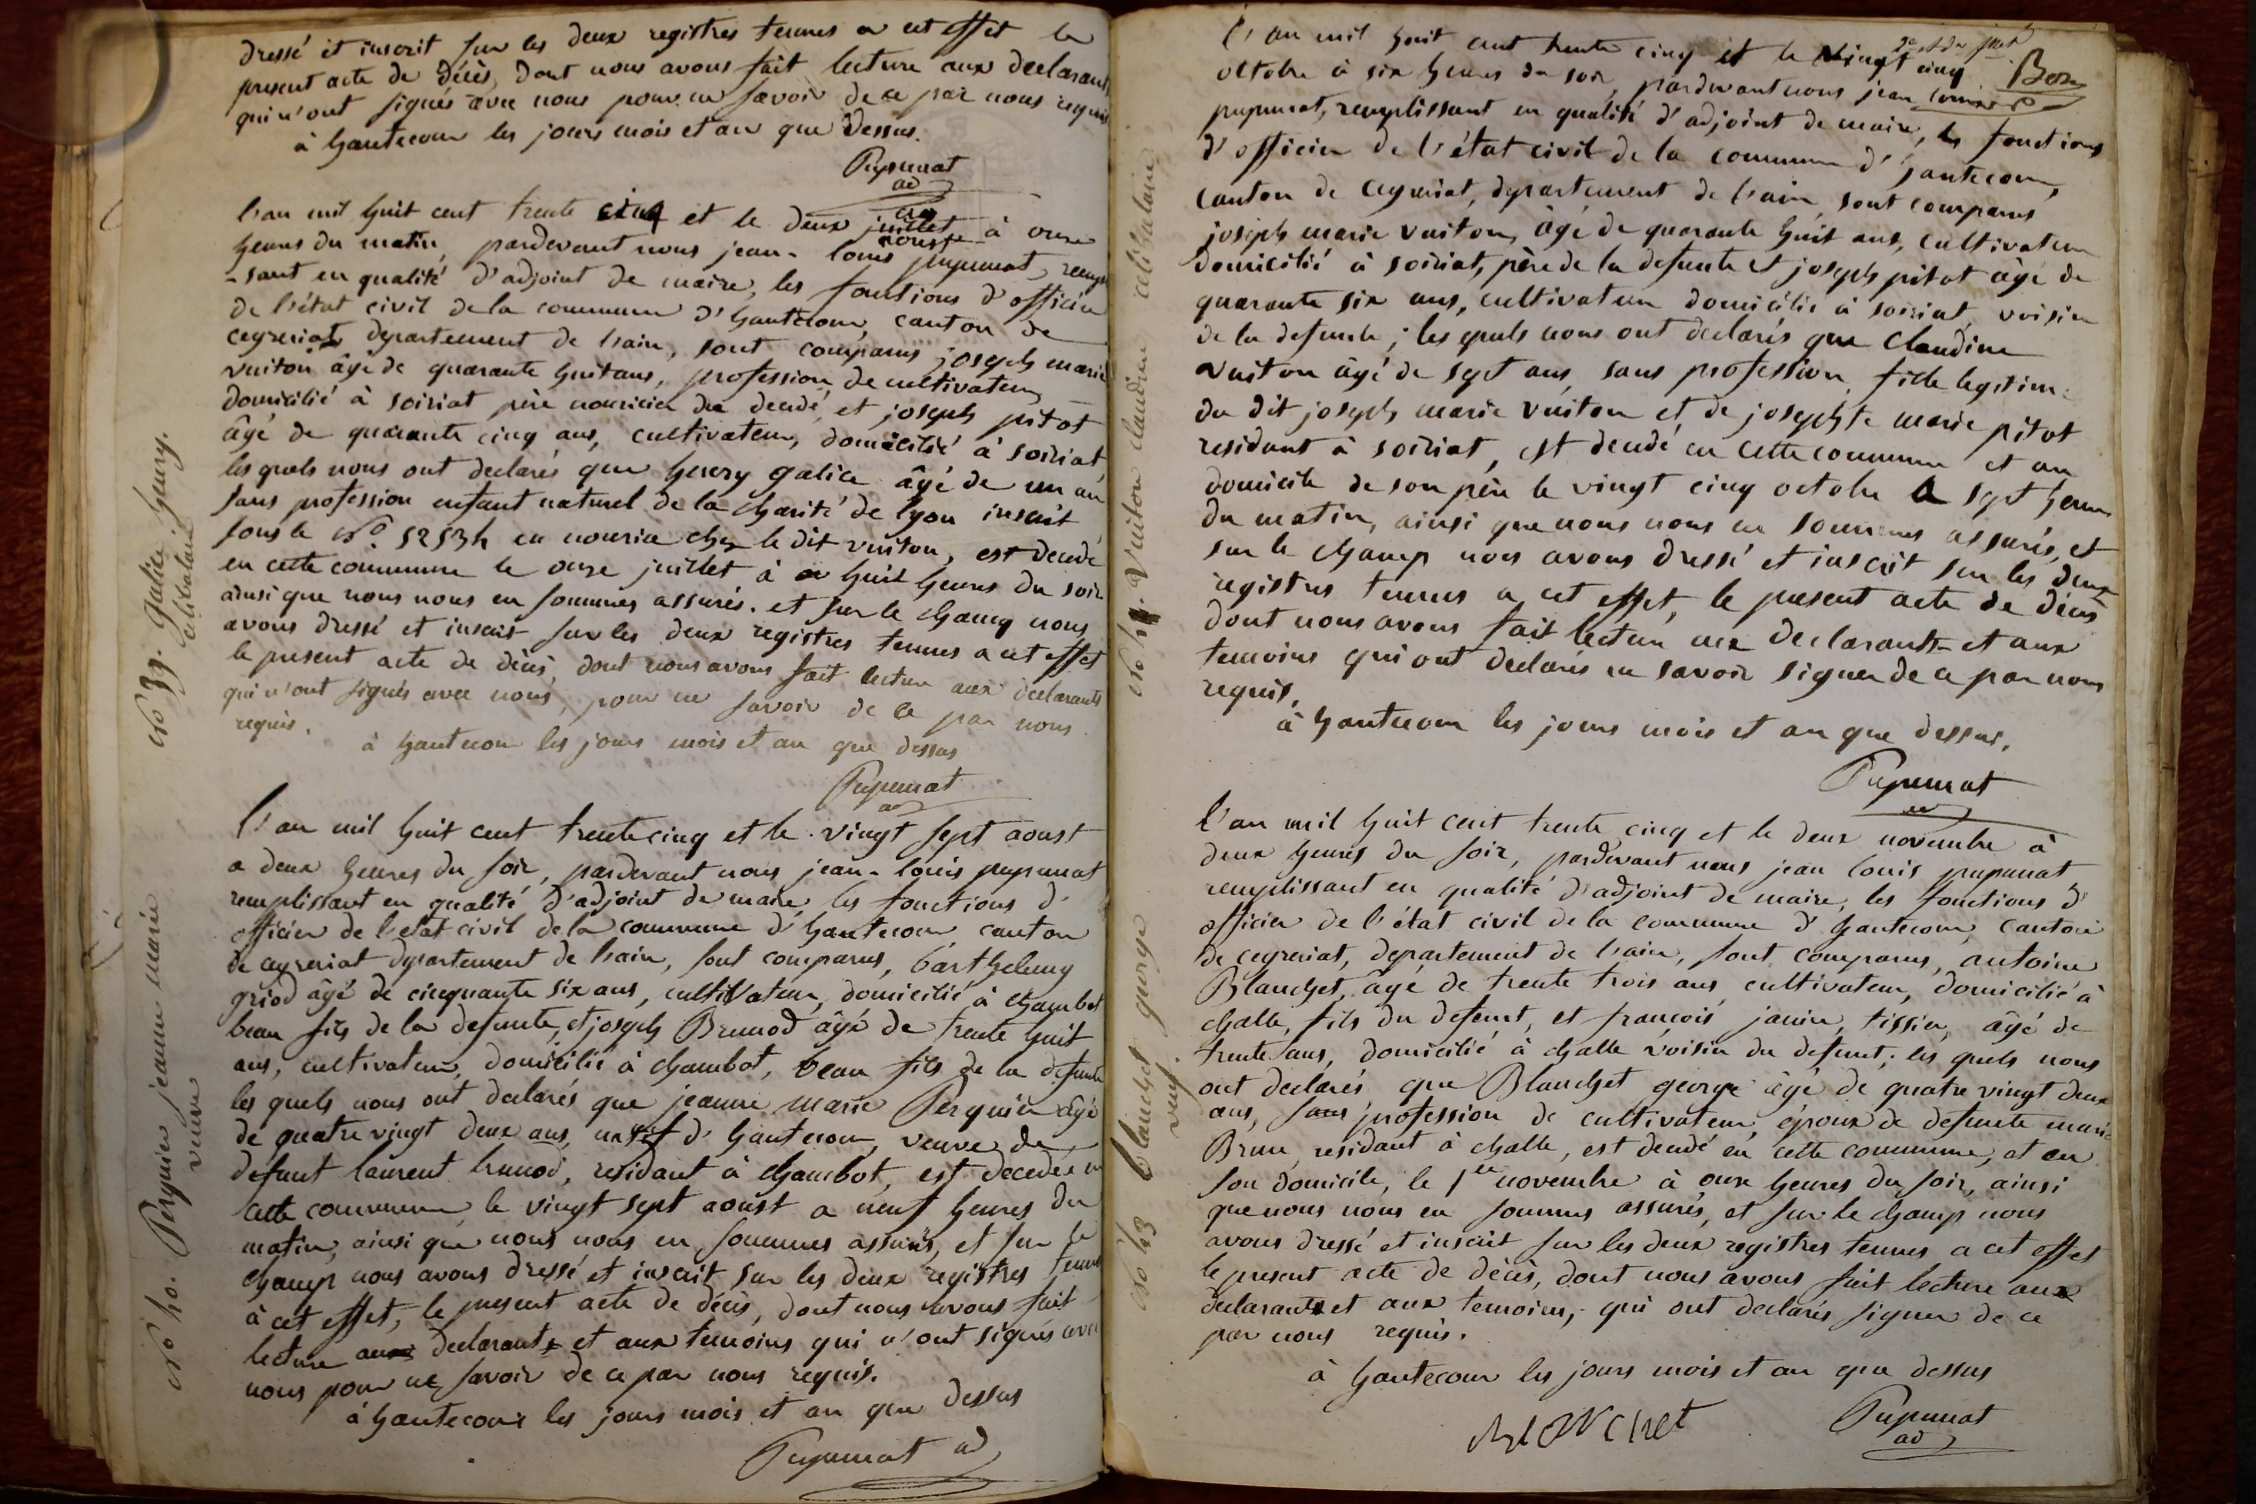 dressé et inscrit sur les deux registres tennus a cet effet le
present acte de décès, dont nous avons fait lecture aux declarants
qui n'ont signés avec nous pour ne savoir de ce par nous requis
à hautecour les jours mois et an que dessus.
Pupunat
ad
No 39. Galice henry.
celibataire
l'an mil huit cent trente cinq et le deux juillet à onze
aoust
heures du matin, pardevant nous jean-louis pupunat, remplis
-sant en qualité d'adjoint de maire, les fonctions d'officier
de l'état civil de la commune d'hautecour, canton de
ceyzeriat departement de l'ain, sont comparus joseph marie
vuiton âgé de quarante huit ans, profession de cultivateur,
domicilié à soiriat père nouricier du decedé, et joseph pitot
âgé de quarante cinq ans, cultivateur, domicilié à soiriat
les quels nous ont declarés que henry galice âgé de un an
sans profession enfant naturel de la charité de lyon inscrit
sous le No 5253h en nourice chez le dit vuiton, est decedé
en cette commune le onze juillet à huit heures du soir
ainsi que nous nous en sommes assurés. et sur le champ nous
avons dressé et inscrit sur les deux registres tennus a cet effet
le present acte de décès, dont nous avons fait lecture aux declarants
qui n'ont signés avec nous, pour ne savoir de ce par nous
requis.
à hautecour les jours mois et an que dessus
Pupunat
ad
No 40. Perquier jeanne marie
veuve
l'an mil huit cent trente cinq et le vingt sept aoust
a deux heures du soir, pardevant nous jean-louis pupunat
remplissant en qualité d'adjoint de maire les fonctions d'
officier de l'etat civil de la commune d'hautecour, canton
de ceyzeriat departement de l'ain, sont comparus, barthelemy
griod âgé de cinquante six ans, cultivateur, domicilié à chambot
beau fils de la defunte, et joseph Brunod âgé de trente huit
ans, cultivateur, domicilié à chambot, beau fils de la defunte
les quels nous ont declarés que jeanne marie Perquier âgé
de quatre vingt deux ans, natif d'hautecour, veuve de
defunt laurent brunod, residant à chambot, est decedée en
cette commune le vingt sept aoust a neuf heures du
matin, ainsi que nous nous en sommes assurés, et sur le
champ nous avons dressé et inscrit sur les deux registres tennus
à cet effet, le present acte de décès, dont nous avons fait
lecture aux declarants et aux temoins qui n'ont signés avec
nous pour ne savoir de ce par nous requis.
à hautecour les jours mois et an que dessus
Pupunat ad
Vuiton claudine celibataire
l'an mil huit cent trente cinq et le vingt cinq
octobre à six heures du soir, pardevant nous jean louis
pupunat, remplissant en qualité d'adjoint de maire, les fonctions
d'officier de l'état civil de la commune d'hautecour,
canton de ceyzeriat, departement de l'ain, sont comparus
joseph marie vuiton, âgé de quarante huit ans, cultivateur
domicilié à soiriat, père de la defunte et joseph pitot âgé de
quarante six ans, cultivateur domicilié à soiriat, voisin
de la defunte; les quels nous ont declarés que claudine
vuiton âgé de sept ans, sans profession, fille legitime
du dit joseph marie vuiton et de josephte marie pitot
residant à soiriat, est decedé en cette commune et au
domicile de son père le vingt cinq octobre a sept heures
du matin, ainsi que nous nous en sommes assurés, et
sur le champ nous avons dressé et inscrit sur les deux
registres tennus a cet effet, le present acte de décès
dont nous avons fait lecture aux declarants et aux
temoins qui ont declarés ne savoir signer de ce par nous
requis,
à hautecour les jours mois et an que dessus,
Pupunat
ad
No 43 Blanchet george
veuf.
l'an mil huit cent trente cinq et le deux novembre à
deux heures du soir, pardevant nous jean louis pupunat
remplissant en qualité d'adjoint de maire, les fonctions d'
officier de l'état civil de la commune d'hautecour, canton
de ceyzeriat, departement de l'ain, sont comparus, antoine
Blanchet, âgé de trente trois ans, cultivateur, domicilié à
challe, fils du defunt, et francois janin, tissier, âgé de
trente ans, domicilié à challe voisin du defunt; les quels nous
ont declarés, que Blanchet george âgé de quatre vingt deux
ans, sans profession de cultivateur, époux de defunte marie
Brun, residant à challe, est decedé en cette commune, et en
son domicile, le 1er novembre à onze heures du soir, ainsi
que nous nous en sommes assurés, et sur le champ nous
avons dressé et inscrit sur les deux registres tennus a cet effet
le present acte de décès, dont nous avons fait lecture aux
declarants et aux temoins, qui ont declarés signer de ce
par nous requis.
à hautecour les jours mois et an que dessus
Blanchet
Pupunat
ad